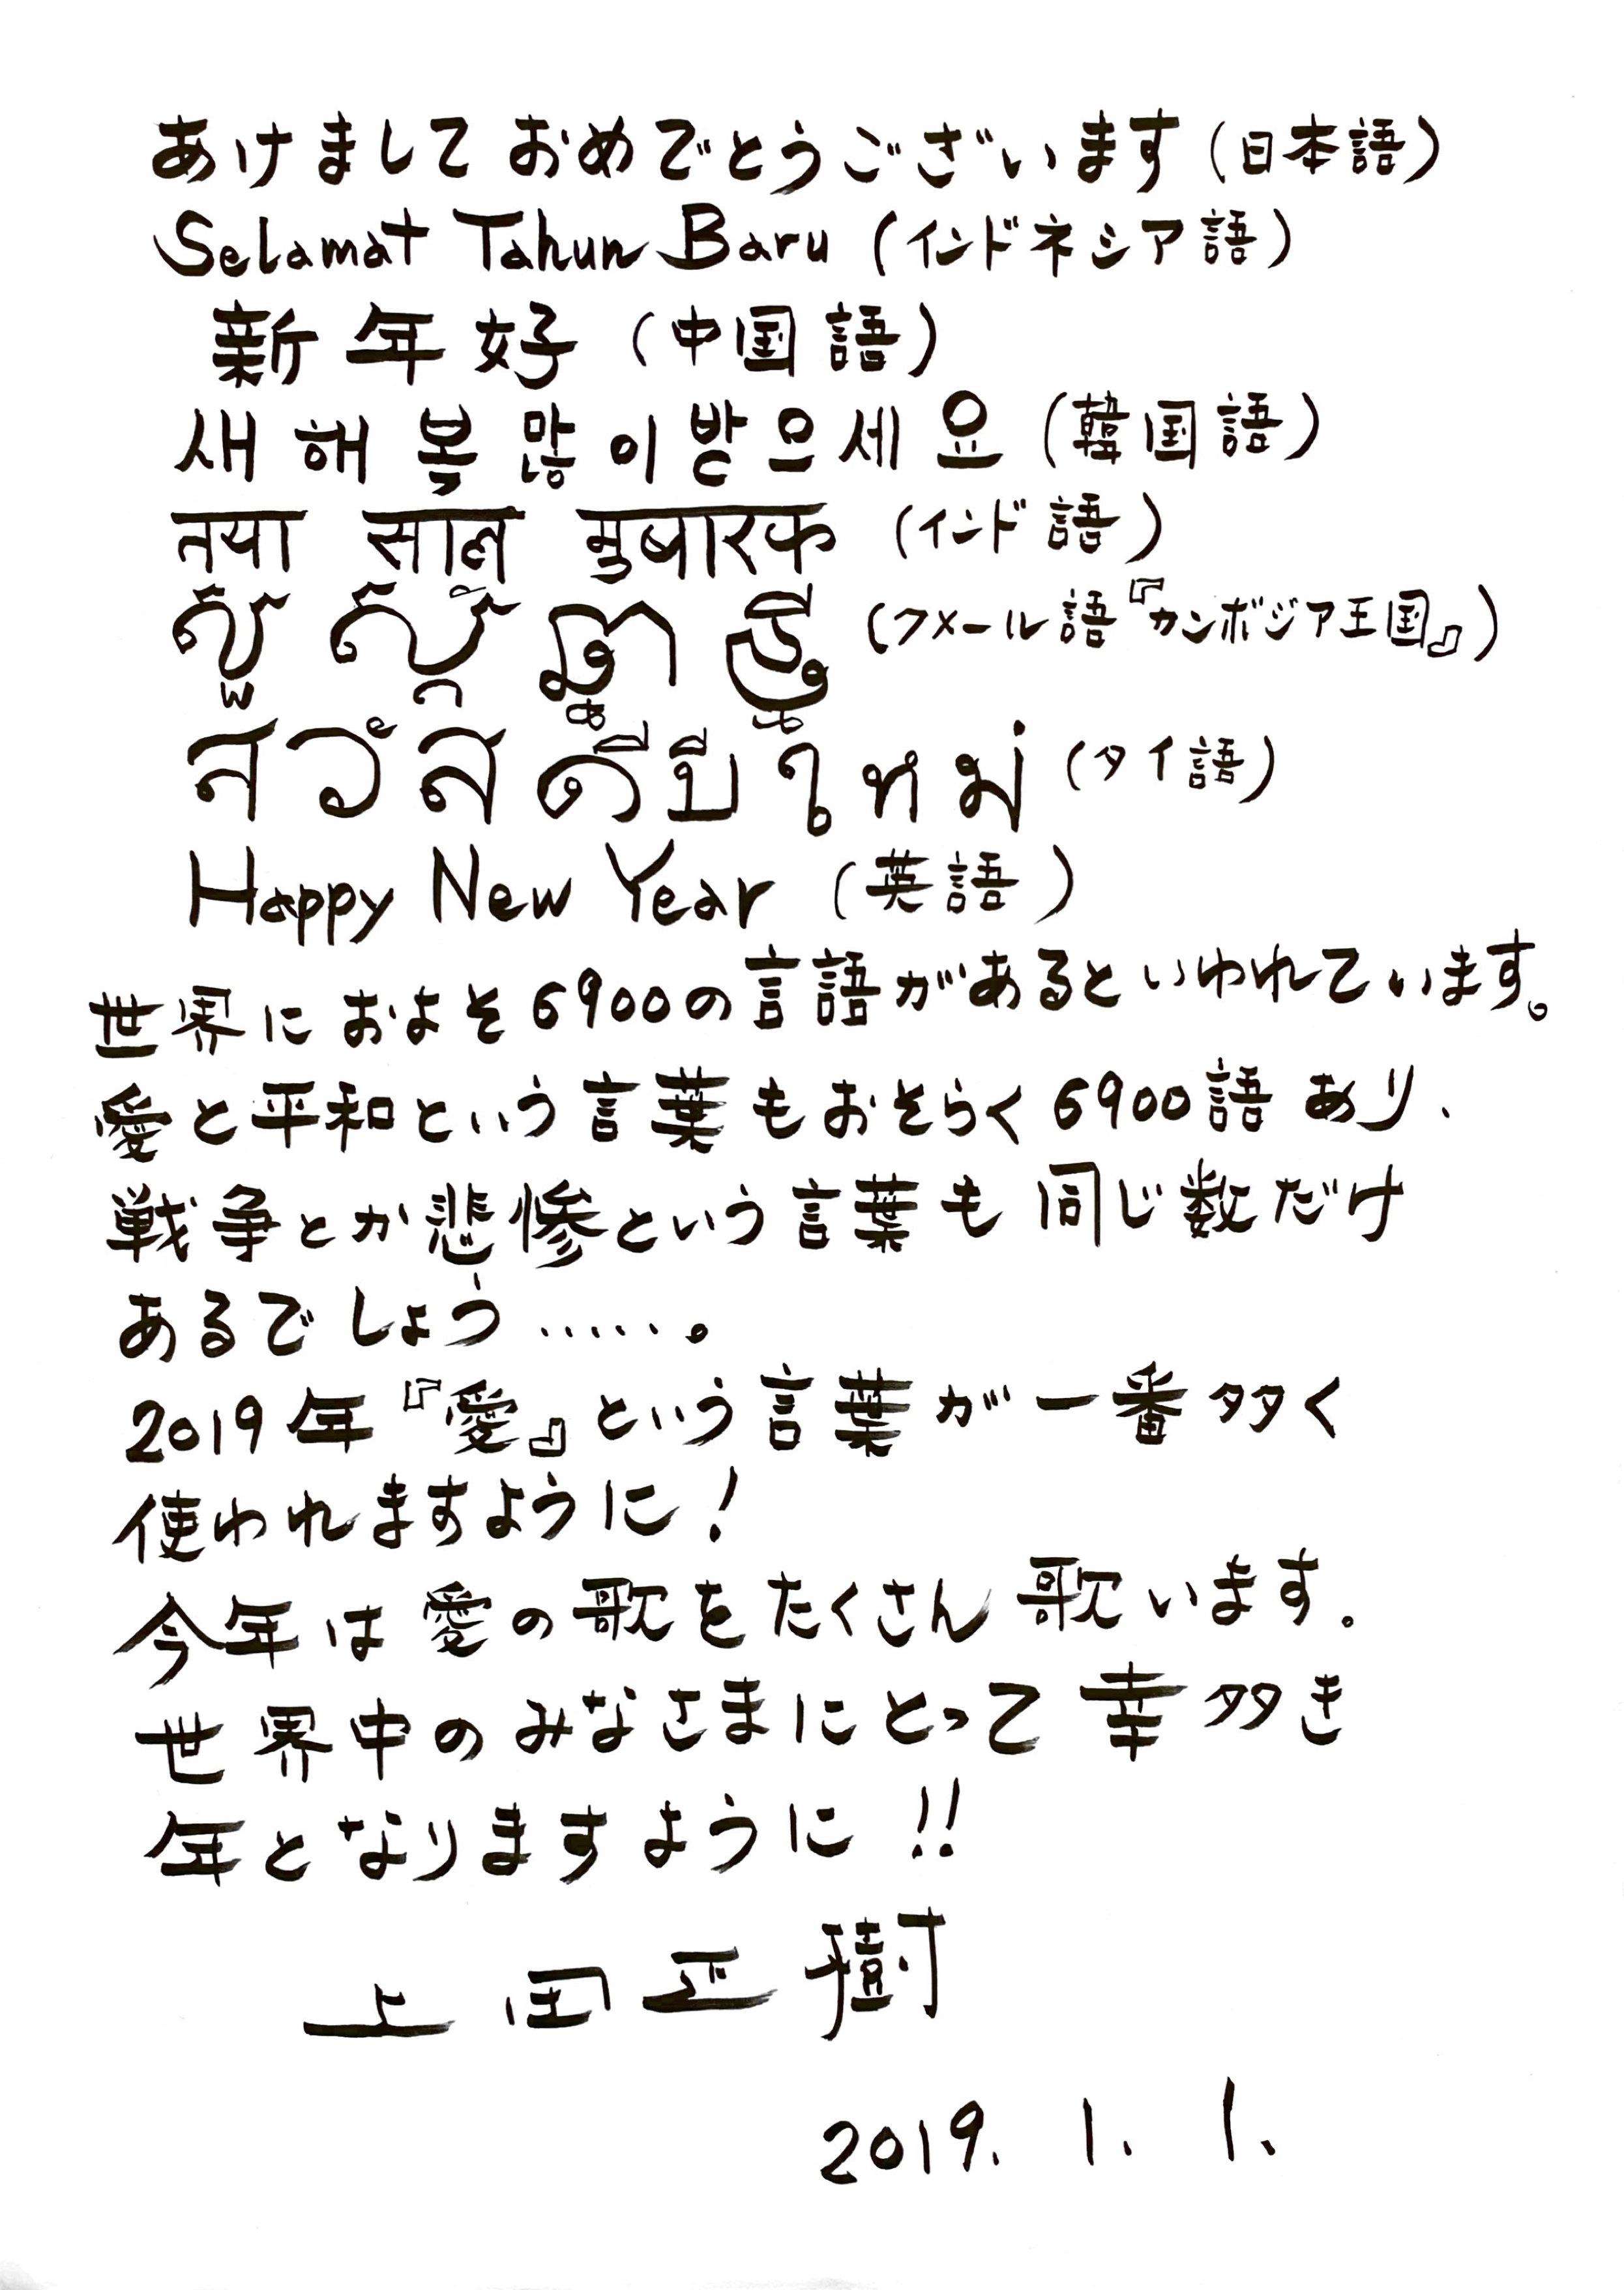 あけまして おめでとうございます (日本語)
Selamat Tahun Baru (インドネシア語)
新年好 (中国語)
새해 복 많이 받으세요 (韓国語)
तया साल मुबारक (インド語)
(クメール語『カンボジア王国』)
สวัสดีปีใหม่ (タイ語)
Happy New Year (英語)
世界におよそ6900の言語があるといわれています。
愛と平和という言葉もおそらく6900語あり、
戦争とか悲惨という言葉も同じ数だけ
あるでしょう……。
2019年『愛』という言葉が一番多く
使われますように!
今年は愛の歌をたくさん歌います。
世界中のみなさまにとって幸多き
年となりますように!!
上田正樹
2019. 1. 1.